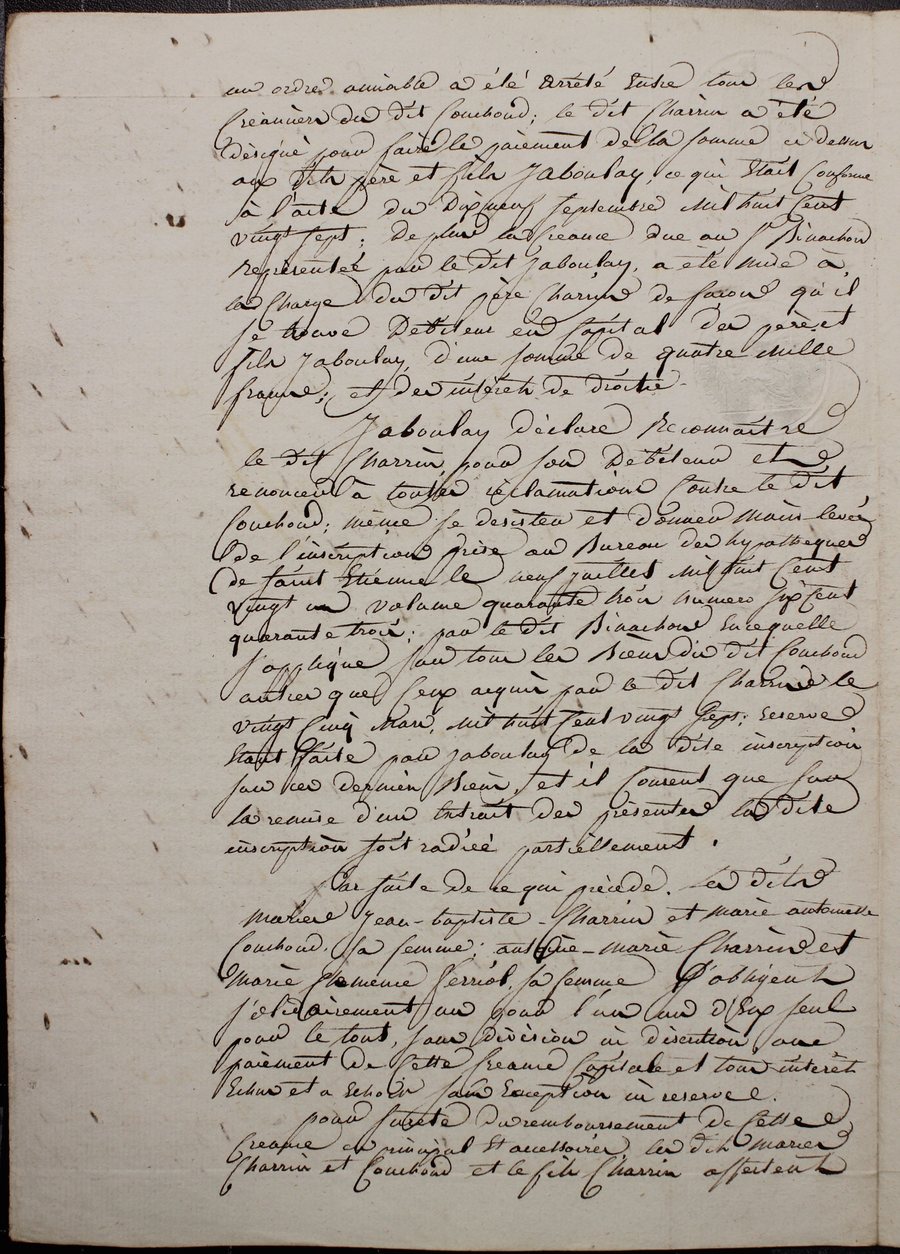 un ordre amiable a été arrêté Entre tous les
Créanciers du dit Couchoud; le dit Charrin a été
désigné pour faire le paiement de la somme ci dessus
aux dits père et fils Jaboulay, ce qui Etait Conforme
à l'acte du Dixneuf Septembre Mil huit Cent
vingt Sept; De plus la Creance due au Sr Binachon
Représentée par le dit Jaboulay, a été mise à
la Charge du dit père Charrin de façon qu'il
se trouve Débiteur en Capital des père et
fils Jaboulay, d'une somme de quatre Mille
francs; et des intérêts de droits.
Jaboulay déclare Reconnaître
le dit Charrin pour son Débiteur et
renoncer à toutes réclamations Contre le dit
Couchoud; même se desister et donner Main-levée
de l'inscription prise au Bureau des hypotheques
de Saint Etienne le neuf juillet Mil huit Cent
vingt un volume quarante trois numero Six Cent
quarante trois; par le dit Binachon En ce quelle
s'applique sur tous les Biens du dit Couchoud
autres que Ceux acquis par le dit Charrin le
vingt Cinq Mars, Mil huit Cent vingt Sept; reserve
Etant faite par Jaboulay de la dite inscription
sur ces derniers Biens, et il Consent que sur
la remise d'un Extrait des présentes la dite
inscription soit radiée partiellement.
Par suite de ce qui précède, les dits
mariés Jean-baptiste-Charrin et marie antoinette
Couchoud, sa femme; antoine-marie Charrin et
Marie Ferriol, sa femme s'obligent
solidairement un pour l'un un d'Eux seul
pour le tout, sans division ni discution au
paiement de Cette Creance Capitale et tous intérêts
Echus et a Echoir sans Exception ni reserve.
pour sureté du remboursement de Cette
Creance en principal Et accessoires, les dits mariés
Charrin et Couchoud et le fils Charrin affectent